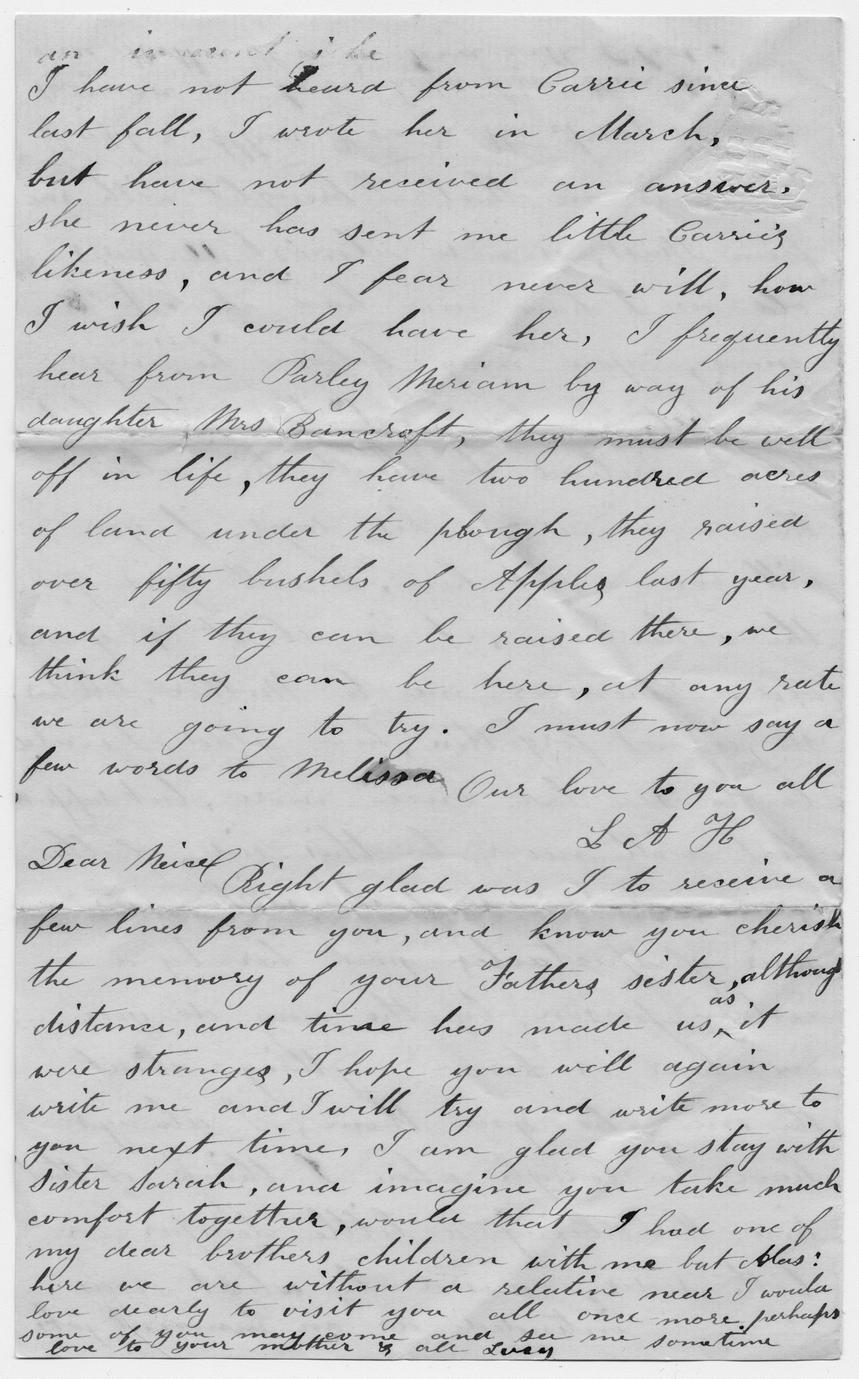 an innocent
I have not heard from Carrie since
last fall, I wrote her in March,
but have not received an answer.
she never has sent me little Carries
likeness, and I fear never will, how
I wish I could have her, I frequently
hear from Parley Meriam by way of his
daughter Mrs Bancroft, they must be well
off in life, they have two hundred acres
of land under the plough, they raised
over fifty bushels of Apples last year,
and if they can be raised there, we
think they can be here, at any rate
we are going to try. I must now say a
few words to Melissa Our love to you all
L A H
Dear Neice Right glad was I to receive a
few lines from you, and know you cherish
the memory of your Fathers sister, although
distance, and time has made us, as it
were stranges, I hope you will again
write me and I will try and write more to
you next time, I am glad you stay with
sister Sarah, and imagine you take much
comfort together, would that I had one of
my dear brothers children with me but Alas:
here we are without a relative near I would
love dearly to visit you all once more. perhaps
some of you may come and see me sometime
love to your mother & all Lucy